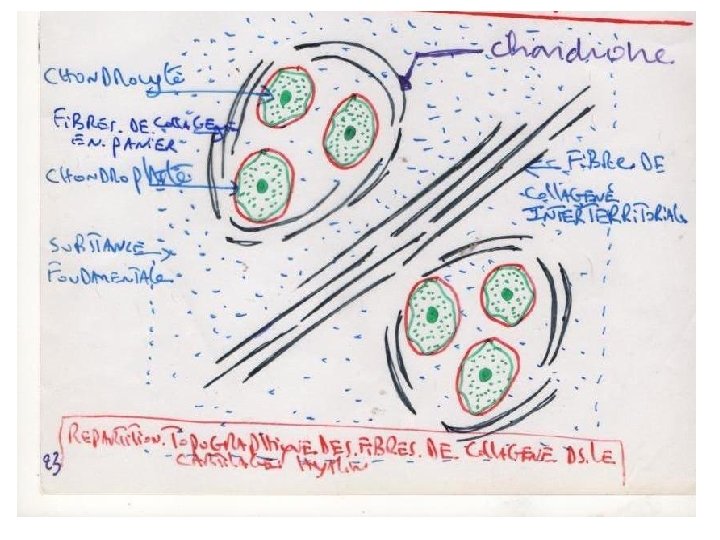 Chondrone
CHONDROCYTE
FIBRES. DE COLLAGENE
EN. PANIER
CHONDROPLASTE
FIBRES DE
COLLAGENE
INTERTERRITORIALE
SUBSTANCE
FONDAMENTALE
REPARTITION. TOPOGRAPHIQUE. DES. FIBRES. DE. COLLAGENE DS. LE
CARTILAGE HYALIN
23